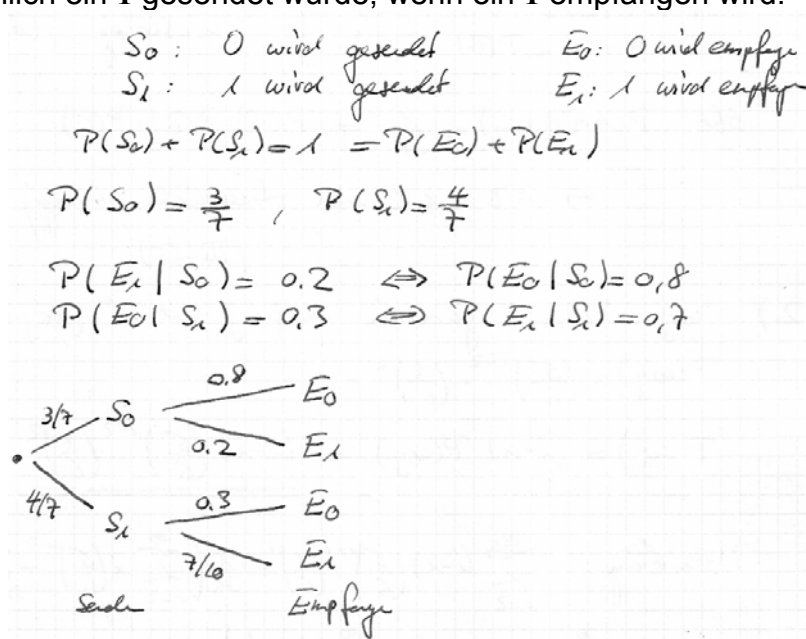 ein 1 gesendet wurde, wenn ein 1 empfangen wird.
S₀: 0 wird gesendet E₀: 0 wird empfange
S₁: 1 wird gesendet E₁: 1 wird empfange
P(S₀) + P(S₁) = 1 = P(E₀) + P(E₁)
P(S₀) = 3/7 , P(S₁) = 4/7
P(E₁ | S₀) = 0.2 ⇔ P(E₀ | S₀) = 0,8
P(E₀ | S₁) = 0.3 ⇔ P(E₁ | S₁) = 0,7
0.8 E₀
3/7 S₀
0.2 E₁
4/7 0.3 E₀
S₁
7/10 E₁
Sende Empfange